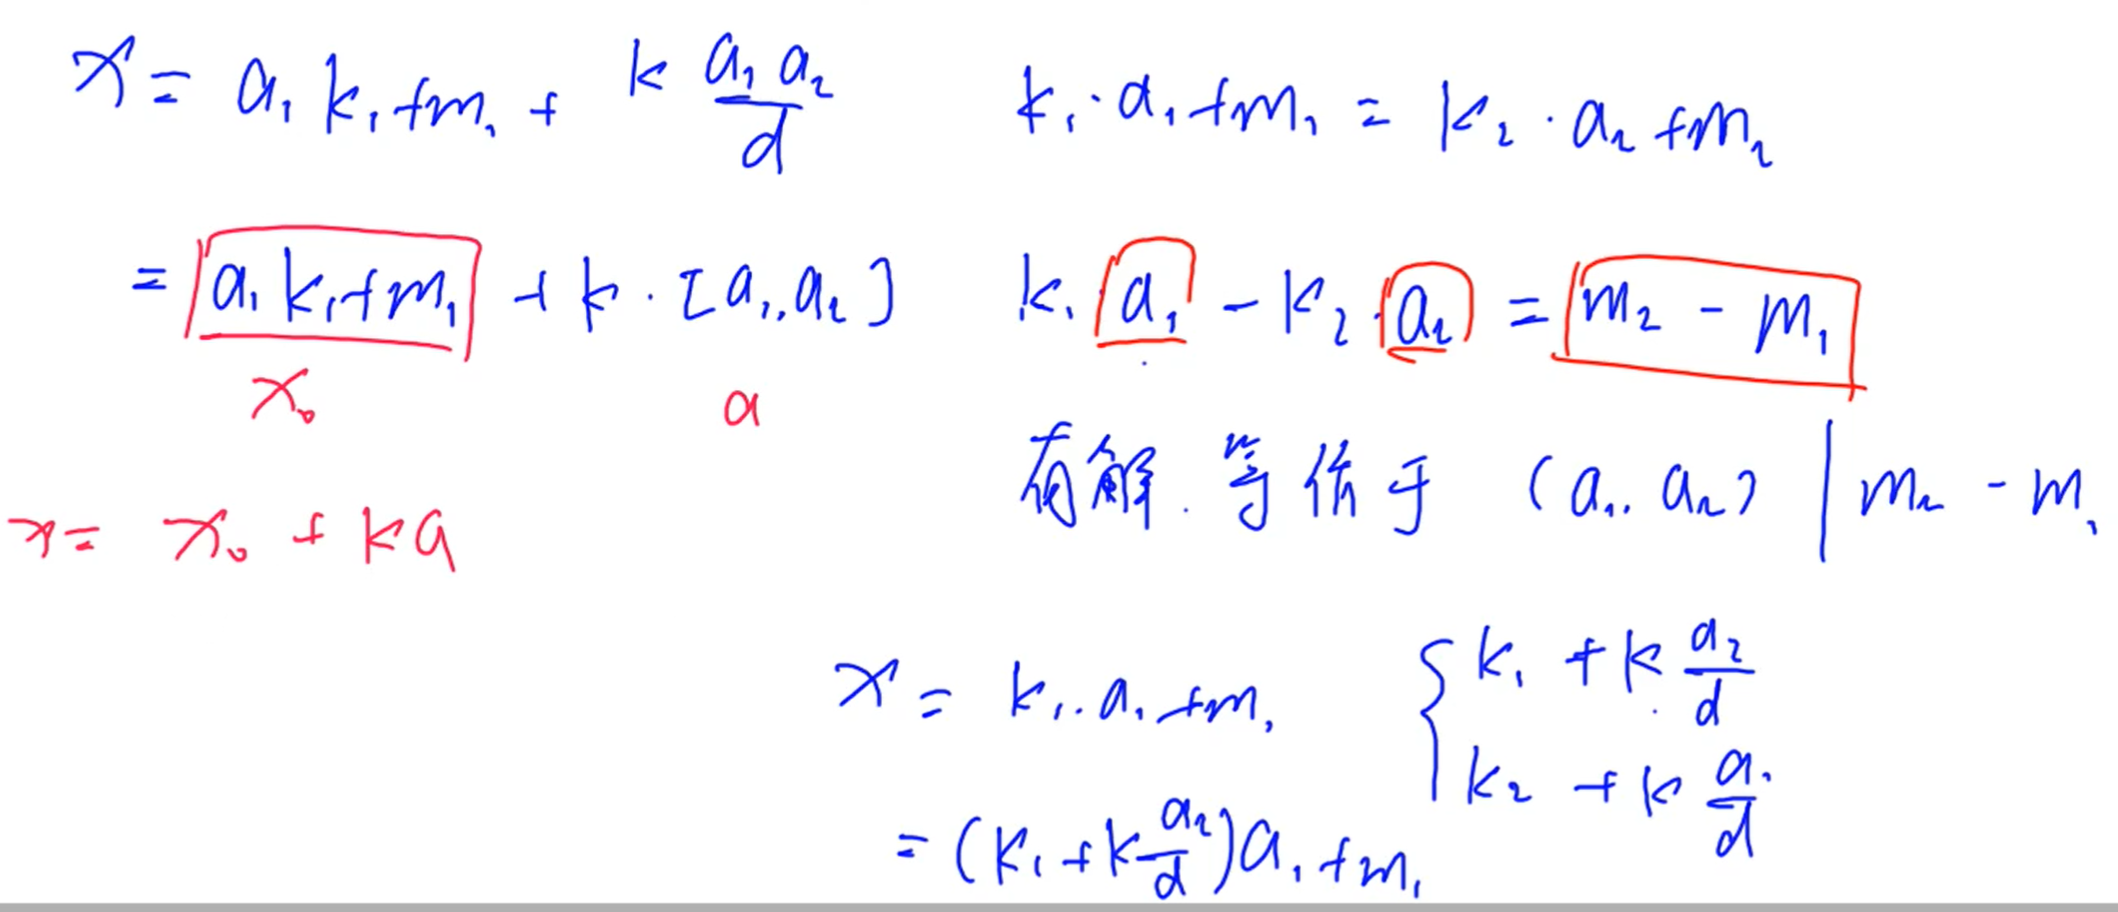 x = a₁k₁+m₁ + k a₁a₂/d
= a₁k₁+m₁ + k·[a₁,a₂]
x₀ a
x = x₀ + ka
k₁·a₁+m₁ = k₂·a₂+m₂
k₁a₁ - k₂·a₂ = m₂ - m₁
有解.等价于 (a₁,a₂) | m₂ - m₁
x = k₁·a₁+m₁
= (k₁+k a₂/d)a₁+m₁
{ k₁ + k a₂/d
k₂ + k a₁/d